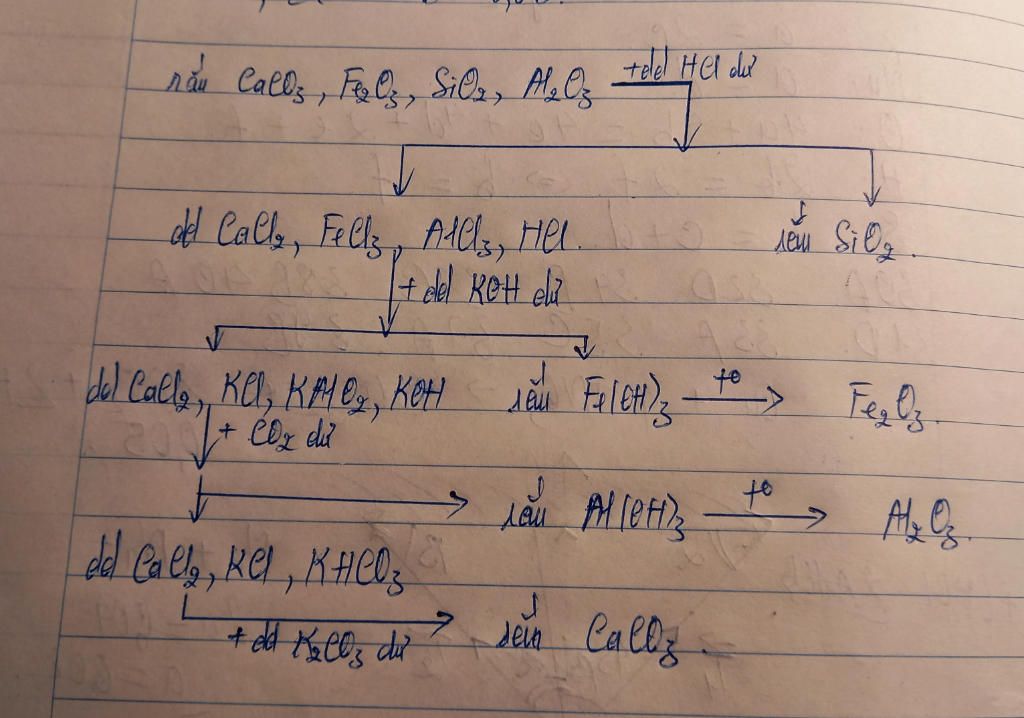 rắn CaCO₃, Fe₂O₃, SiO₂, Al₂O₃ +dd HCl dư
dd CaCl₂, FeCl₃, AlCl₃, HCl. rắn SiO₂.
+ dd KOH dư
dd CaCl₂, KCl, KAlO₂, KOH rắn Fe(OH)₃ +t° Fe₂O₃.
+ CO₂ dư
rắn Al(OH)₃ +t° Al₂O₃.
dd CaCl₂, KCl, KHCO₃
+ dd K₂CO₃ dư rắn CaCO₃.